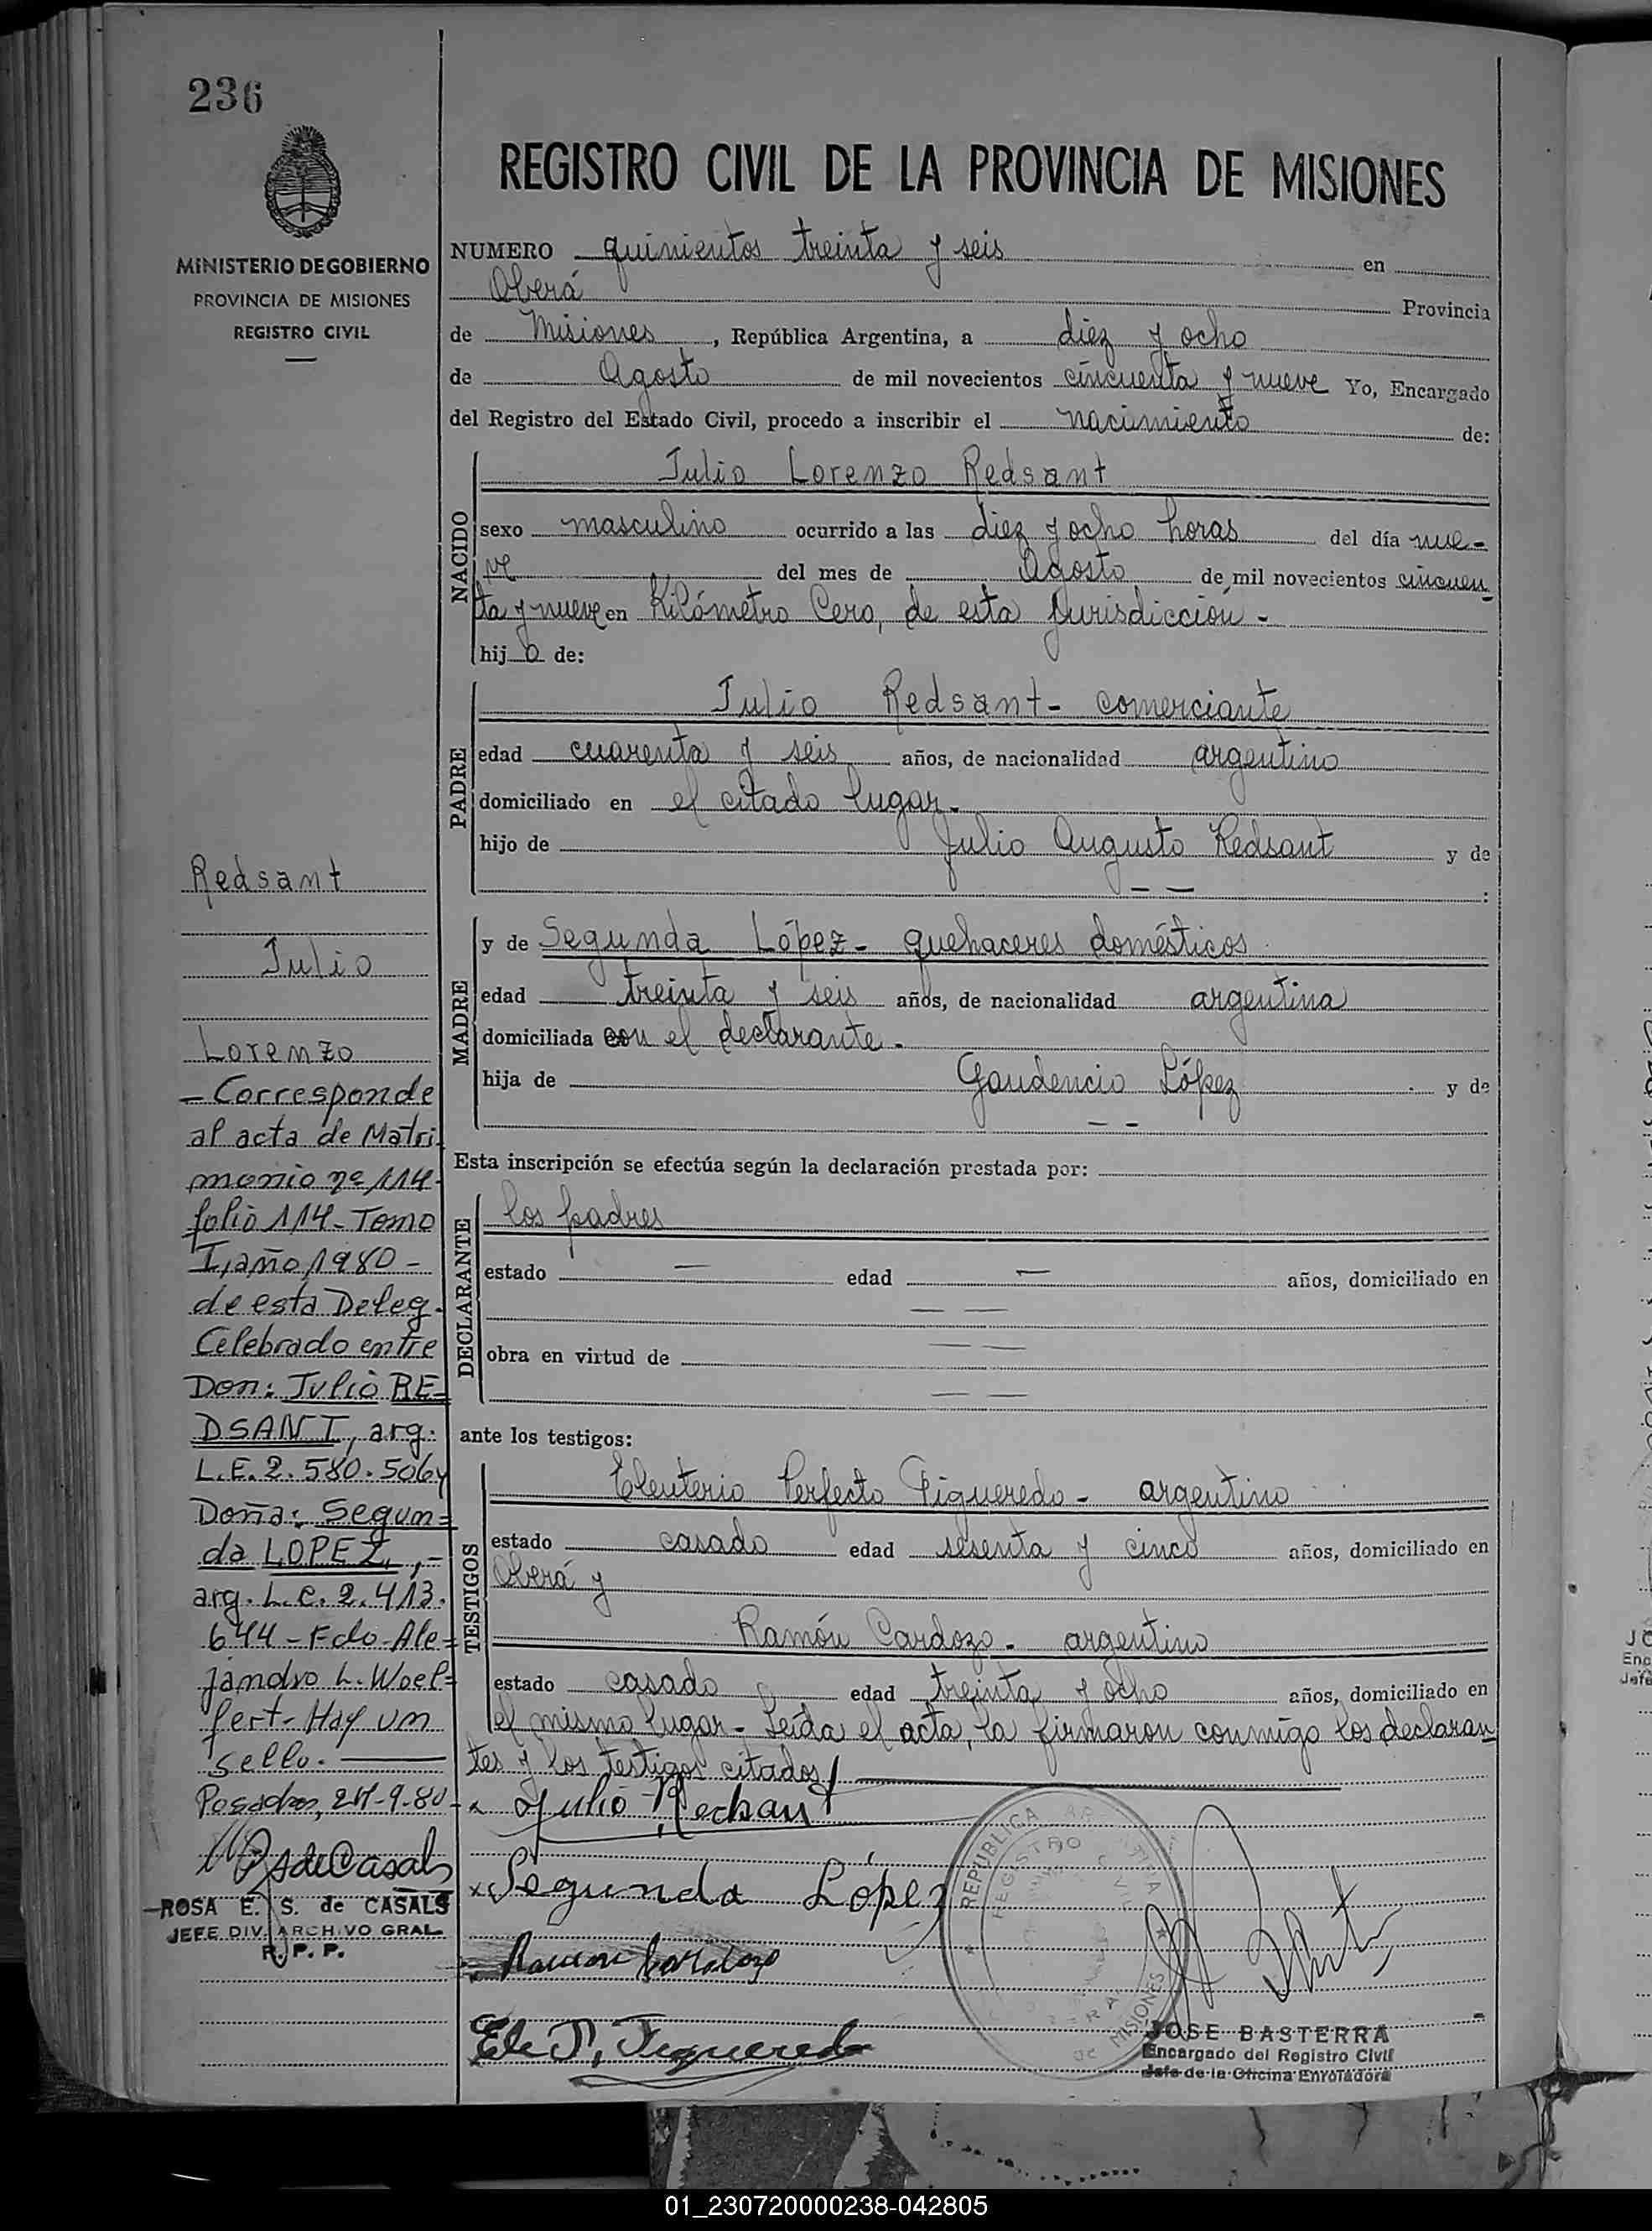 236
MINISTERIO DE GOBIERNO
PROVINCIA DE MISIONES
REGISTRO CIVIL
REGISTRO CIVIL DE LA PROVINCIA DE MISIONES
NUMERO quinientos treinta y seis en
Oberá Provincia
de Misiones, República Argentina, a diez y ocho
de Agosto de mil novecientos cincuenta y nueve Yo, Encargado
del Registro del Estado Civil, procedo a inscribir el nacimiento de:
NACIDO
Julio Lorenzo Redsant
sexo masculino ocurrido a las diez y ocho horas del día nue-
ve del mes de Agosto de mil novecientos cincuen
ta y nueve en Kilómetro Cero, de esta Jurisdicción -
hijo de:
PADRE
Julio Redsant - comerciante
edad cuarenta y seis años, de nacionalidad argentino
domiciliado en el citado lugar.
hijo de Julio Augusto Redsant y de
— — :
MADRE
y de Segunda López - quehaceres domésticos
edad treinta y seis años, de nacionalidad argentina
domiciliada con el declarante.
hija de Gaudencio López y de
— —
Esta inscripción se efectúa según la declaración prestada por:
DECLARANTE
los padres
estado — edad — años, domiciliado en
— —
obra en virtud de — —
— —
ante los testigos:
TESTIGOS
Eleuterio Perfecto Figueredo - argentino
estado casado edad sesenta y cinco años, domiciliado en
Oberá y
Ramón Cardozo - argentino
estado casado edad treinta y ocho años, domiciliado en
el mismo lugar - Leída el acta, la firmaron conmigo los declaran
tes y los testigos citados/
x Julio Redsant
x Segunda López
Ramon Cardozo
Ele P. Figueredo
REPUBLICA ARGENTINA
REGISTRO CIVIL
MISIONES
JOSE BASTERRA
Encargado del Registro Civil
Jefe de la Oficina Enroladora
Redsant
Julio
Lorenzo
- Corresponde
al acta de Matri-
monio nº 114-
folio 114 - Tomo
I, año 1980 -
de esta Deleg.
Celebrado entre
Don: Julio RE=
DSANT, arg.
L.E. 2.580.506 y
Doña: Segun=
da LOPEZ, -
arg. L.C. 2.413.
644 - Fdo. Ale=
jandro L. Woel=
fert - Hay un
sello.
Posadas, 24-9-80
ROSA E. S. de CASALS
JEFE DIV. ARCHIVO GRAL.
R. P. P.
01_230720000238-042805